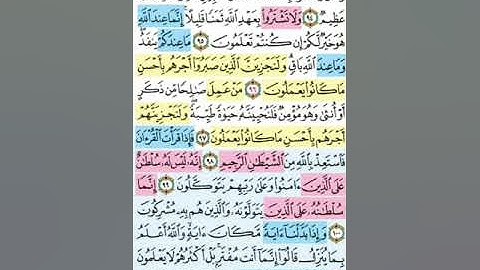 عَظِيمٌ ٩٤ وَلَا تَشْتَرُوا۟ بِعَهْدِ ٱللَّهِ ثَمَنًا قَلِيلًا ۚ إِنَّمَا عِندَ ٱللَّهِ
هُوَ خَيْرٌ لَّكُمْ إِن كُنتُمْ تَعْلَمُونَ ٩٥ مَا عِندَكُمْ يَنفَدُ ۖ
وَمَا عِندَ ٱللَّهِ بَاقٍ ۗ وَلَنَجْزِيَنَّ ٱلَّذِينَ صَبَرُوٓا۟ أَجْرَهُم بِأَحْسَنِ
مَا كَانُوا۟ يَعْمَلُونَ ٩٦ مَنْ عَمِلَ صَـٰلِحًا مِّن ذَكَرٍ
أَوْ أُنثَىٰ وَهُوَ مُؤْمِنٌ فَلَنُحْيِيَنَّهُۥ حَيَوٰةً طَيِّبَةً ۖ وَلَنَجْزِيَنَّهُمْ
أَجْرَهُم بِأَحْسَنِ مَا كَانُوا۟ يَعْمَلُونَ ٩٧ فَإِذَا قَرَأْتَ ٱلْقُرْءَانَ
فَٱسْتَعِذْ بِٱللَّهِ مِنَ ٱلشَّيْطَـٰنِ ٱلرَّجِيمِ ٩٨ إِنَّهُۥ لَيْسَ لَهُۥ سُلْطَـٰنٌ
عَلَى ٱلَّذِينَ ءَامَنُوا۟ وَعَلَىٰ رَبِّهِمْ يَتَوَكَّلُونَ ٩٩ إِنَّمَا
سُلْطَـٰنُهُۥ عَلَى ٱلَّذِينَ يَتَوَلَّوْنَهُۥ وَٱلَّذِينَ هُم بِهِۦ مُشْرِكُونَ
١٠٠ وَإِذَا بَدَّلْنَآ ءَايَةً مَّكَانَ ءَايَةٍ ۙ وَٱللَّهُ أَعْلَمُ
بِمَا يُنَزِّلُ قَالُوٓا۟ إِنَّمَآ أَنتَ مُفْتَرٍۭ ۚ بَلْ أَكْثَرُهُمْ لَا يَعْلَمُونَ